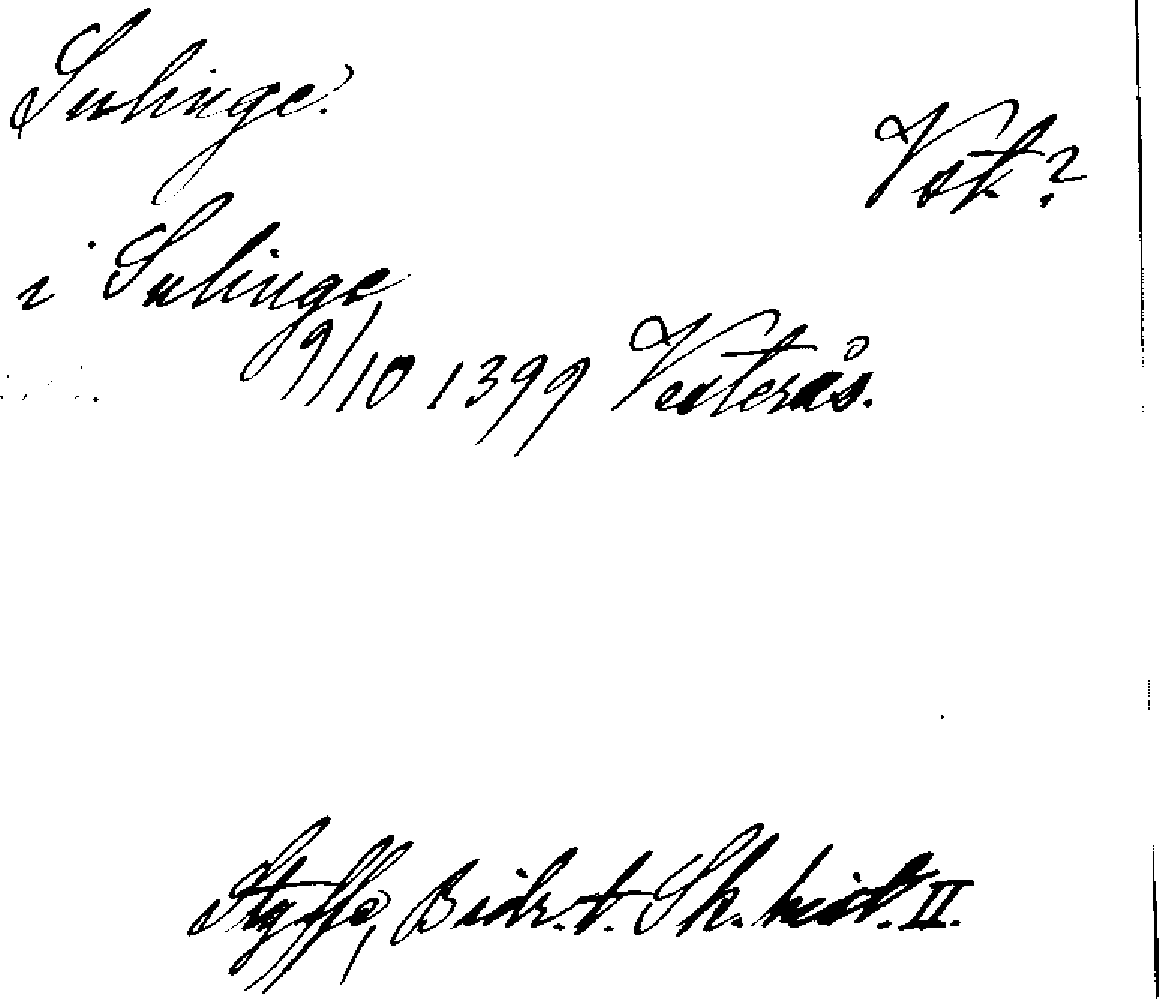 Sulinge.
Vsk?
i Sulinge
9/10 1399 Vesterås.
Styffe, Bidr. t. Sk. hist. II.